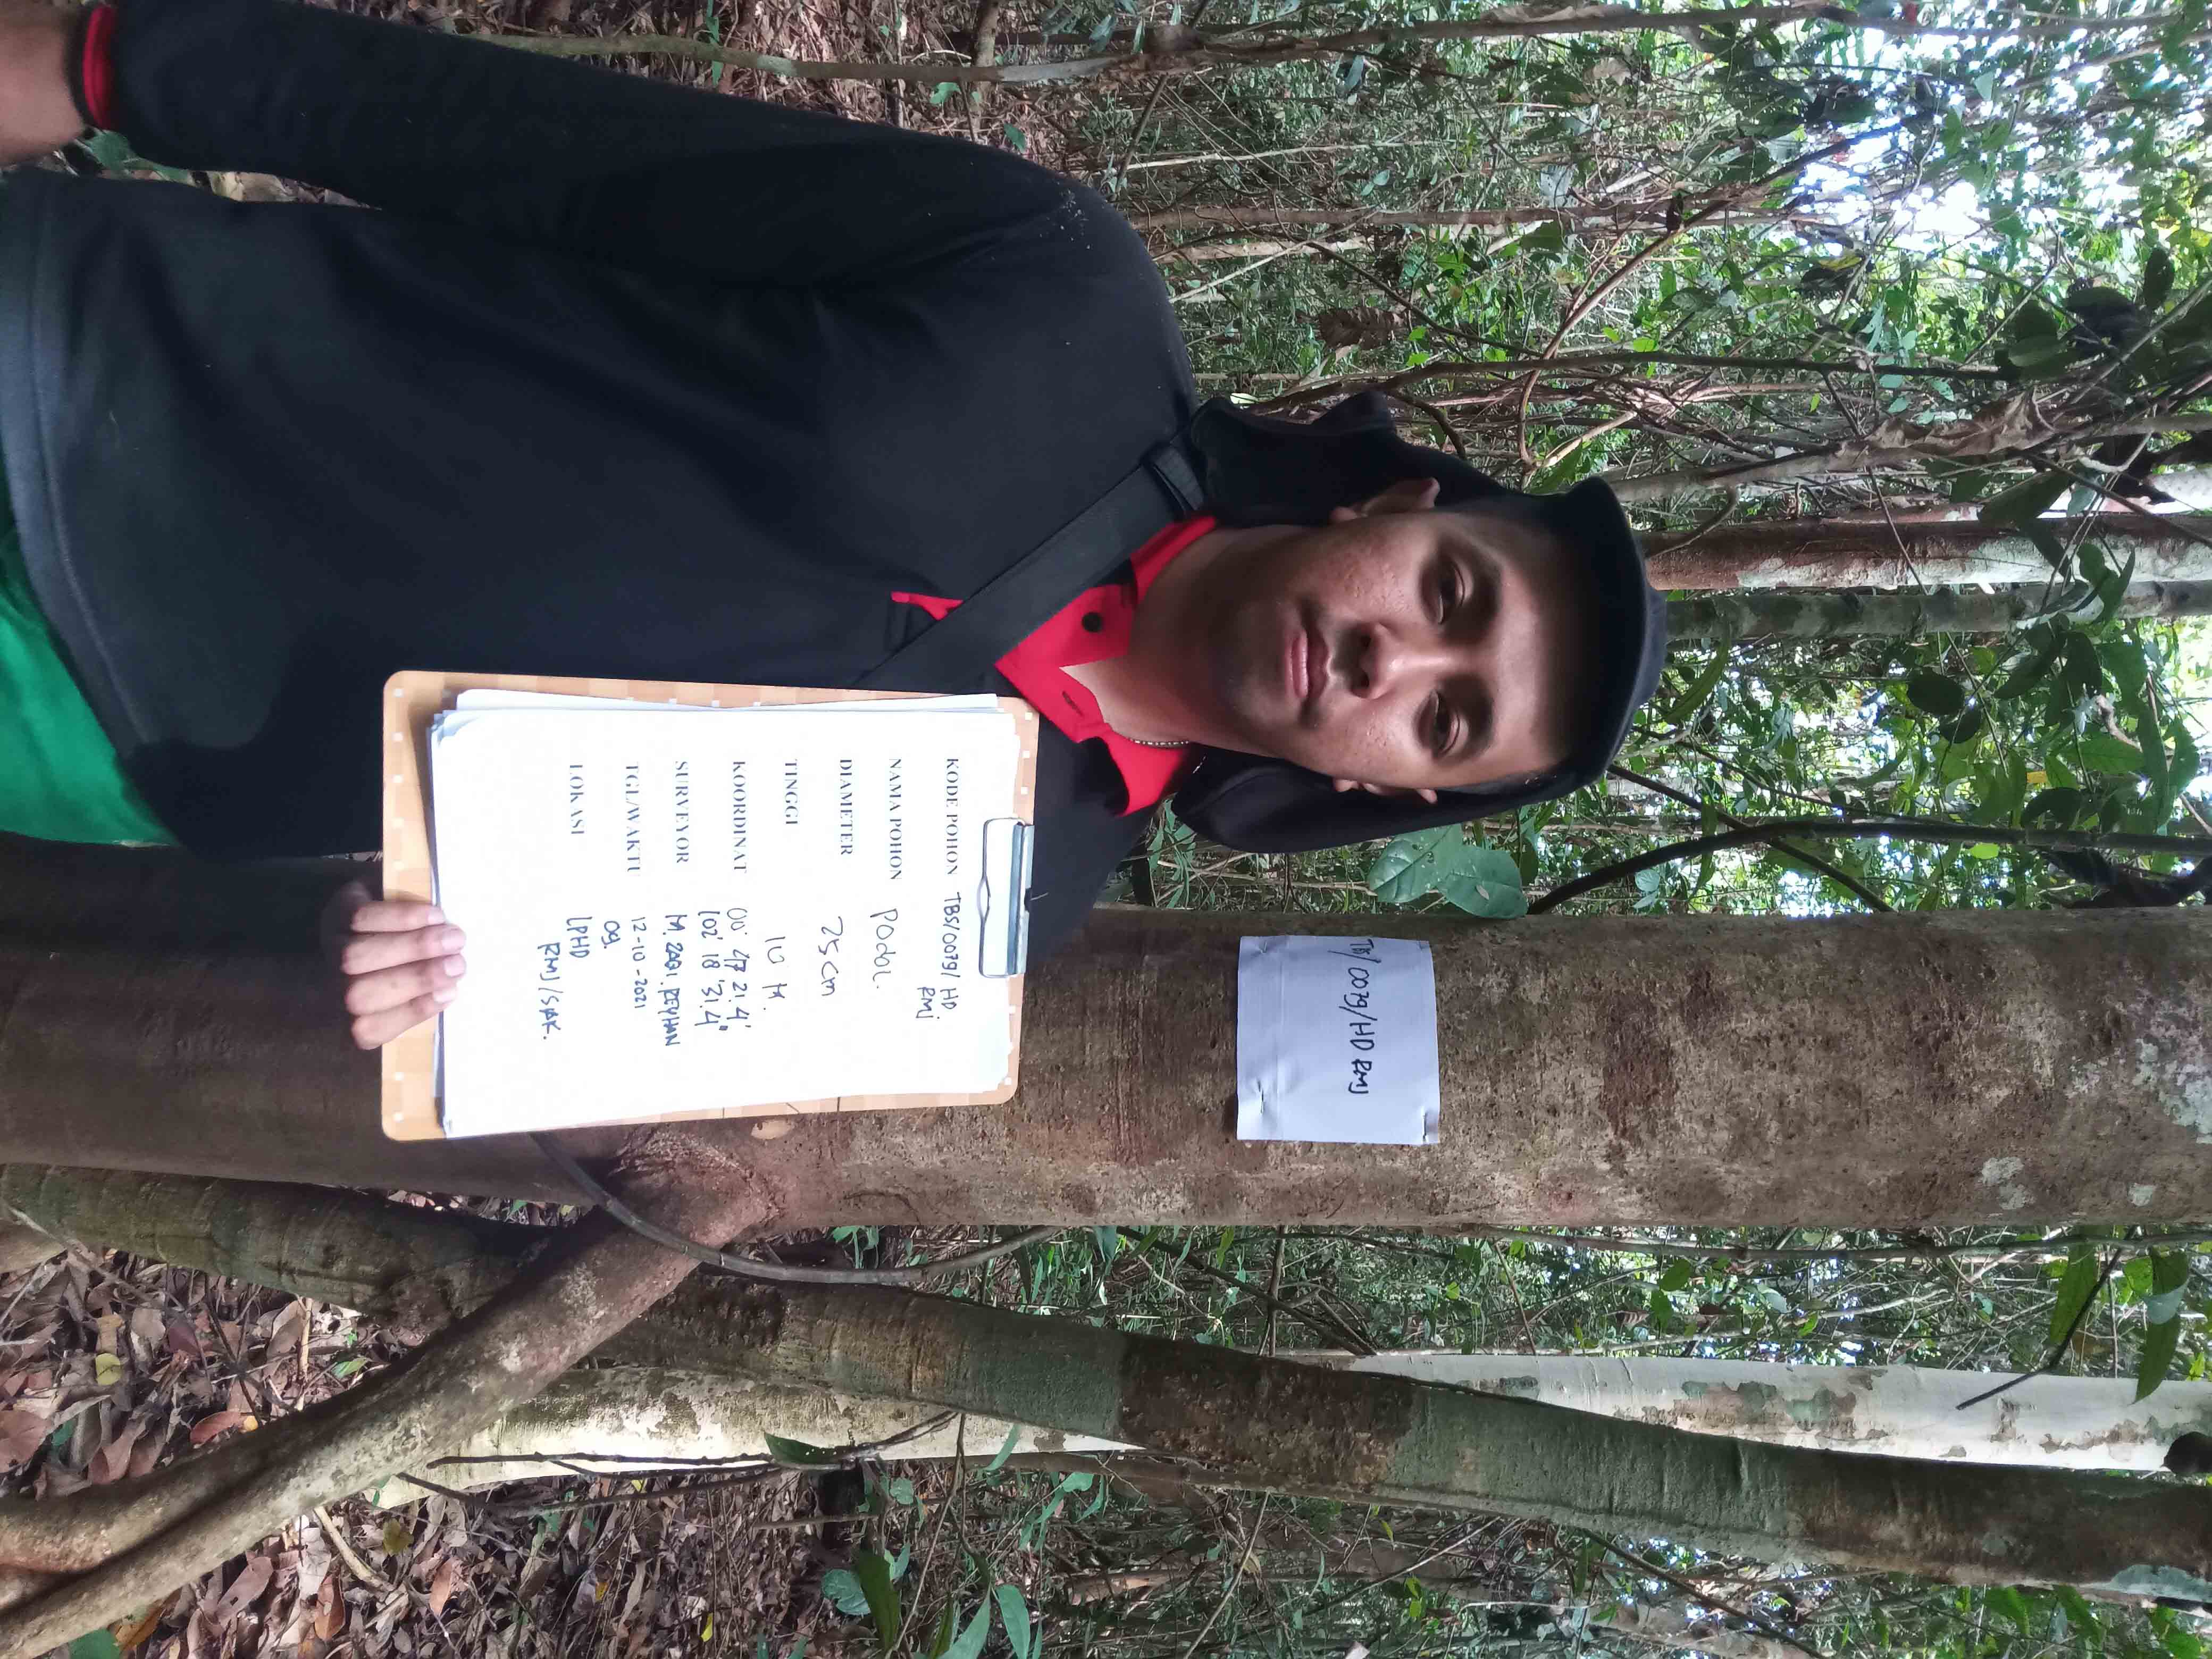 KODE POHON TBS/0079/HD
RMJ
NAMA POHON Podol.
DIAMETER 25 cm
TINGGI 10 M.
KOORDINAT 00° 47' 21.4"
102° 18' 31.4"
SURVEYOR M. ZAQI. REYHAN
TGL/WAKTU 12-10-2021
09.
LOKASI LPHD
RMJ/SAK.
/0079/HD RMJ